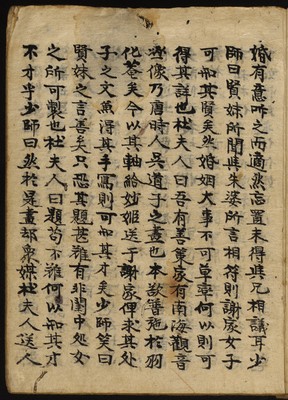 婚有意所之而適然忘置未得與兄相議耳少
師曰賢妹所聞與朱婆所言相符則謝家女子
可知其賢矣然婚姻大事不可草率何以則可
得其詳也杜夫人曰吾有善策家有南海觀音
畵像乃唐時人吳道子之畵也本欲簪施於羽
化菴矣今以其軸給妙姬送于謝家俾求其處
子之文魚得其手寫則可知其才矣少師笑曰
賢妹之言善矣只恐其題甚難有非閨中處女
之所可製也杜夫人曰題苟不難何以知其才
不才乎少師曰然於是盡却衆媒杜夫人送人